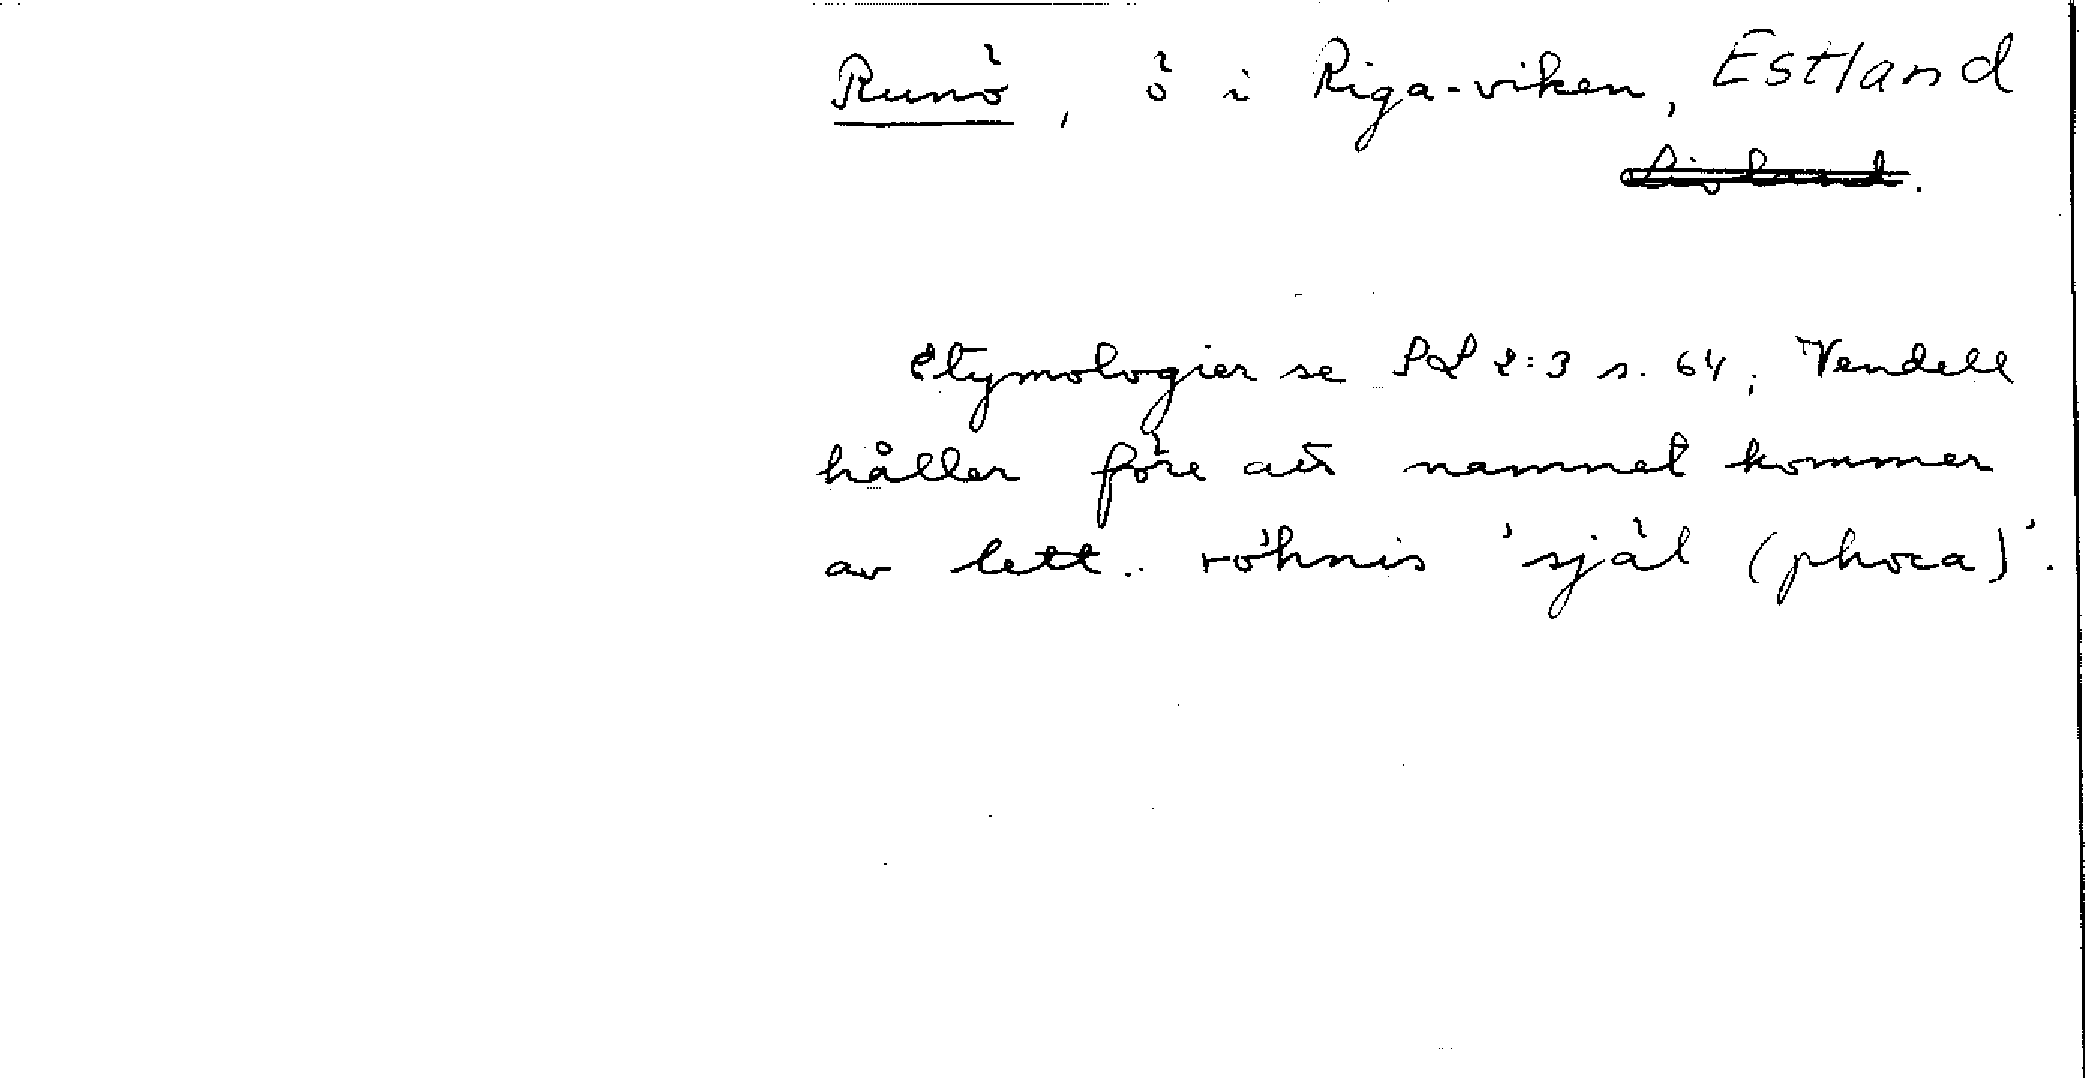 Runö, ö i Riga-viken, Estland
Livland.
Etymologier se SL 2:3 s. 64; Vendell
håller före att namnet kommer
av lett. röhnis 'själ (phoca)'.